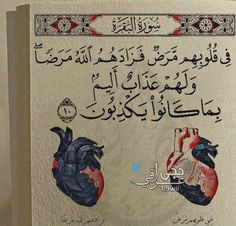 سُورَةُ البَقَرَةِ
فِي قُلُوبِهِم مَّرَضٌ فَزَادَهُمُ ٱللَّهُ مَرَضًاۖ
وَلَهُمْ عَذَابٌ أَلِيمُۢ
بِمَا كَانُوا۟ يَكْذِبُونَ ١٠
في قلوبهم مرض
فزادهم الله مرضا